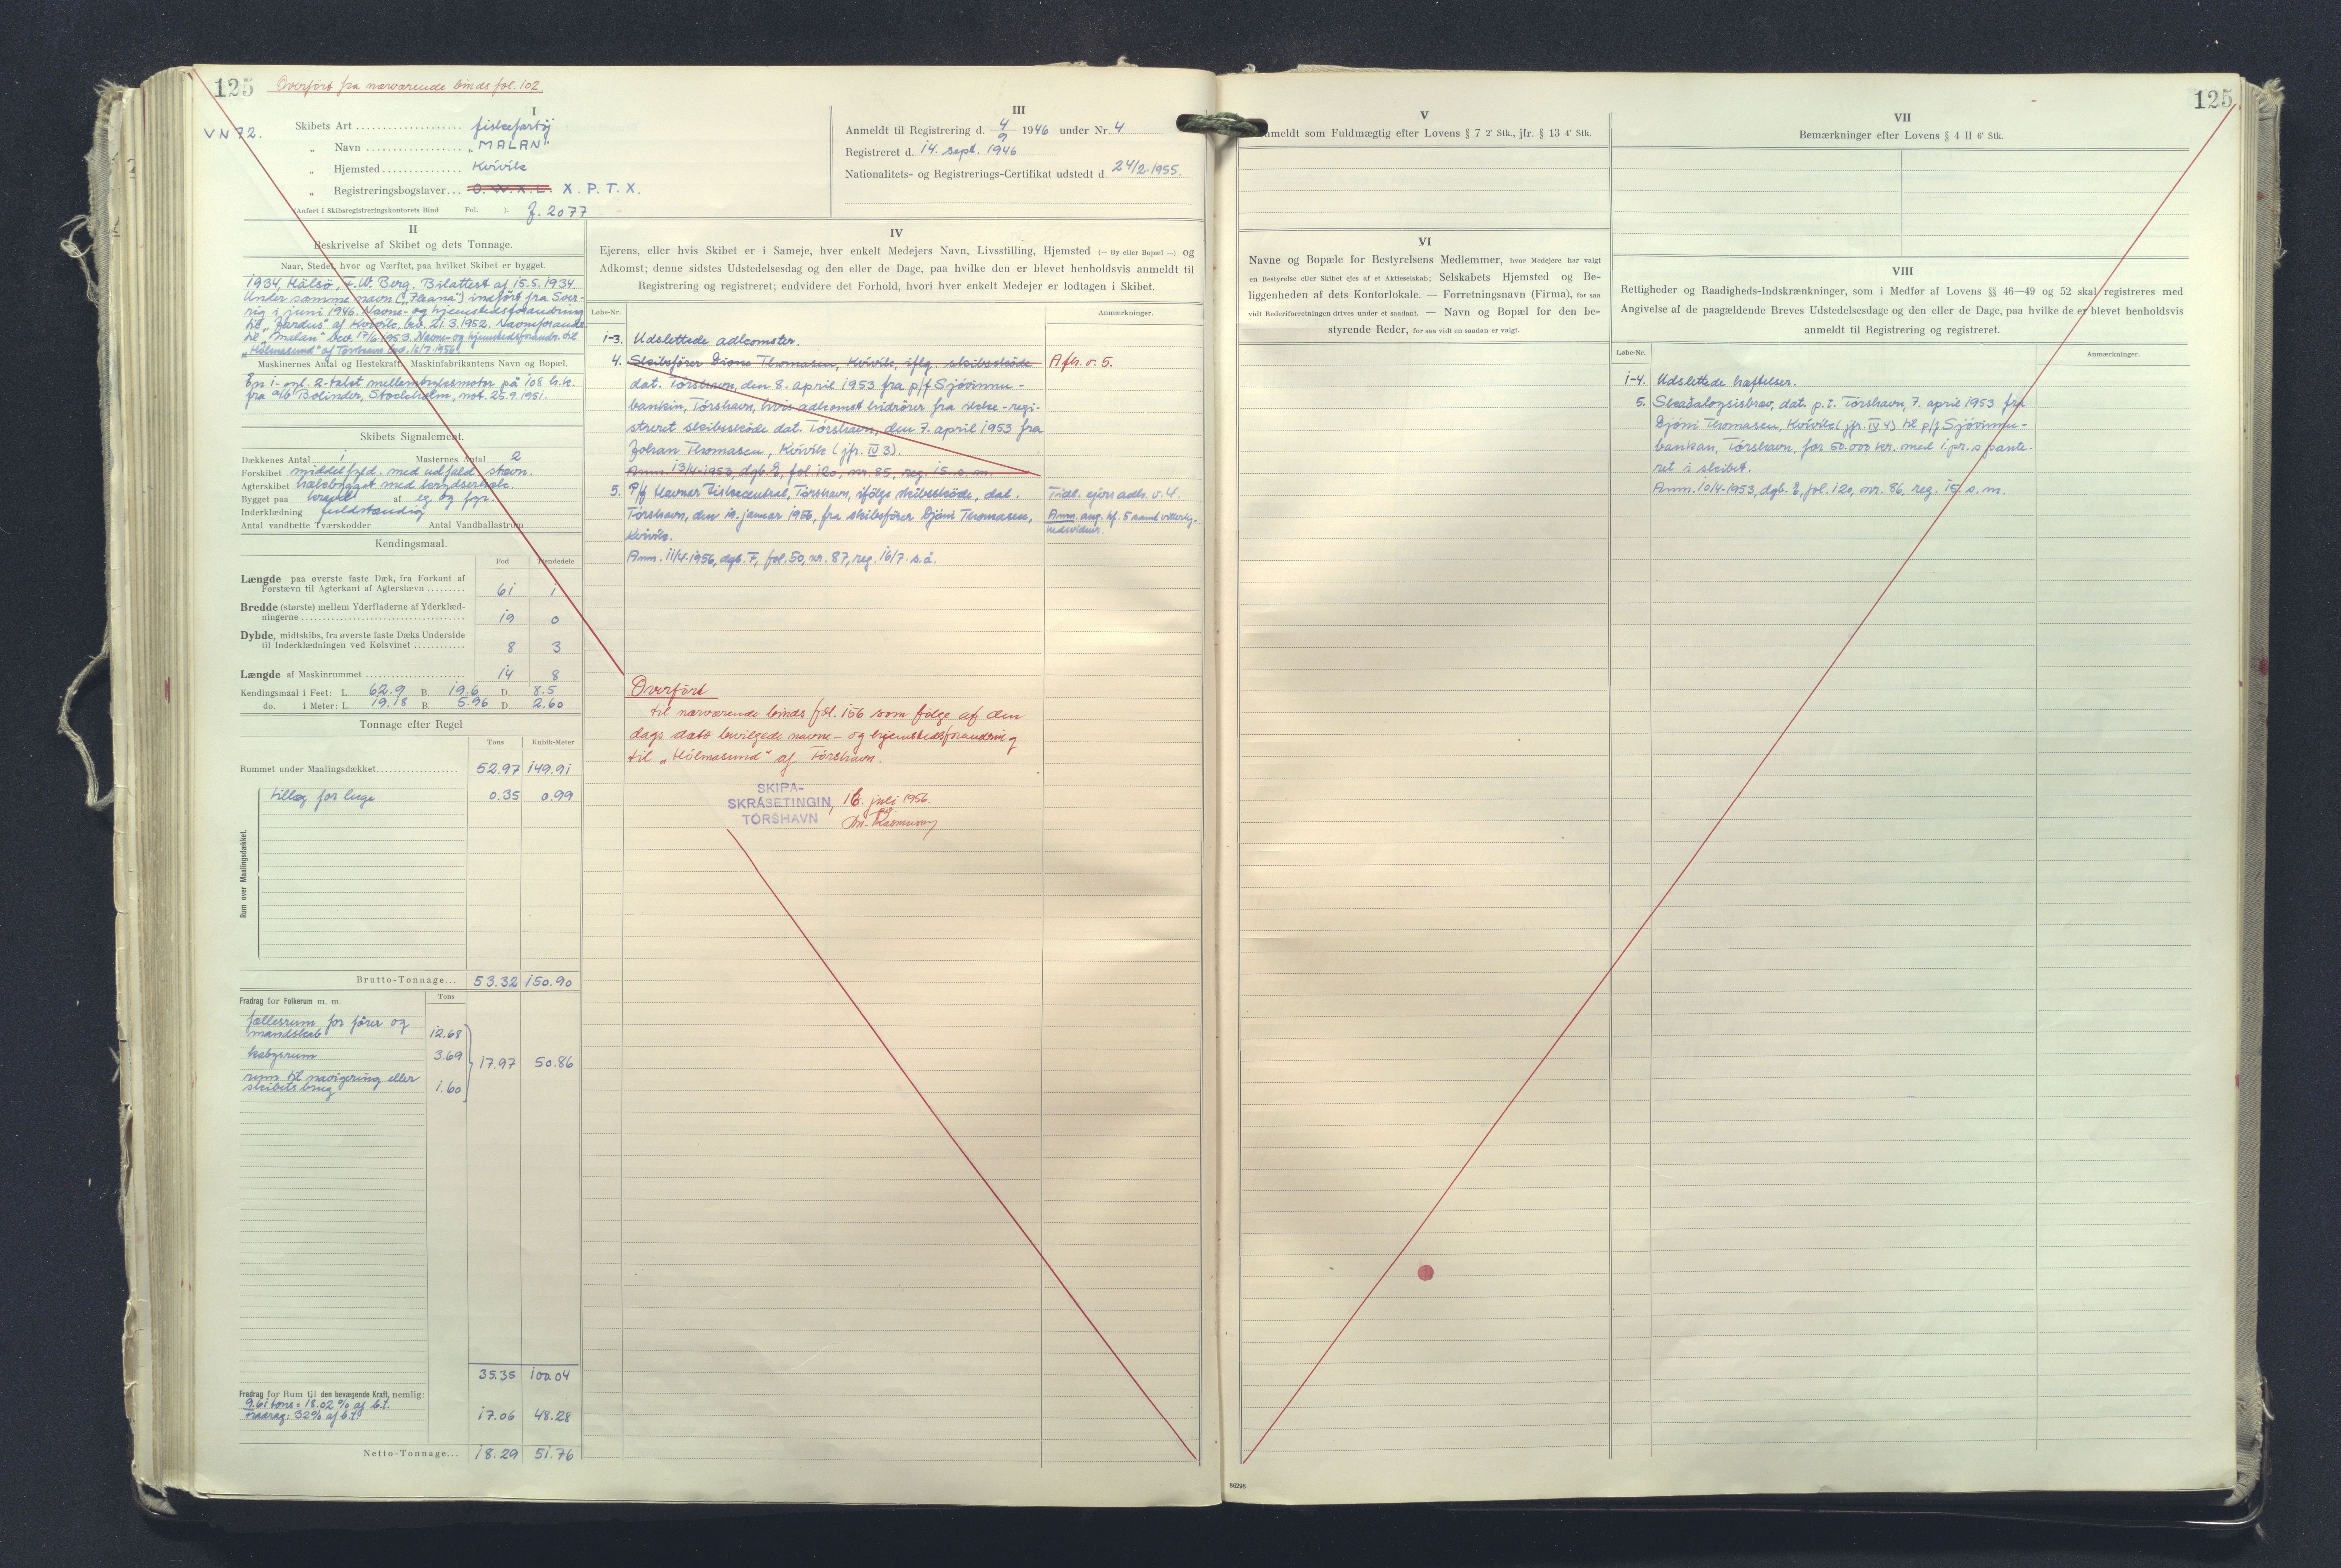 125
Overført fra nærværende binds fol. 102.
VN 72.
I
Skibets Art .................... fiskefartøj
„ Navn .................... „MALAN“
„ Hjemsted ............... Kvivik
„ Registreringsbogstaver... O.W.X.L. X.P.T.X.
(Anført i Skibsregistreringskontorets Bind Fol. ). f. 2077
III
Anmeldt til Registrering d. 4/9 1946 under Nr. 4
Registreret d. 14. sept. 1946
Nationalitets- og Registrerings-Certifikat udstedt d. 24/2.1955.
II
Beskrivelse af Skibet og dets Tonnage.
Naar, Stedet, hvor og Værftet, paa hvilket Skibet er bygget.
1934, Hälsö, F.W. Berg. Bilattest af 15.5.1934.
Under samme navn („Fleana“) indført fra Sver-
rig i juni 1946. Navne- og hjemstedsforandring
til „Jardus“ af Kvivik, bev. 21.3.1952. Navneforandr.
til „Malan“ bev. 17/6 1953. Navne- og hjemstedsforandr. til
„Hólmasund“ af Tórshavn bev. 16/7.1956.
Maskinernes Antal og Hestekraft. Maskinfabrikantens Navn og Bopæl.
En 1-cyl. 2-takt mellemtryksmotor på 108 h.k.
fra a/b Bolinder, Stockholm, not. 25.9.1951.
Skibets Signalement.
Dækkenes Antal 1 Masternes Antal 2
Forskibet middelfyld. med udfald. stævn.
Agterskibet hælebygget med krydserhæk.
Bygget paa kravel af eg og fyr.
Inderklædning fuldstændig
Antal vandtætte Tværskodder Antal Vandballastrum
Kendingsmaal.
Fod Tiendedele
Længde paa øverste faste Dæk, fra Forkant af
Forstævn til Agterkant af Agterstævn ......... 61 1
Bredde (største) mellem Yderfladerne af Yderklæd-
ningerne ........................ 19 0
Dybde, midtskibs, fra øverste faste Dæks Underside
til Inderklædningen ved Kølsvinet ............ 8 3
Længde af Maskinrummet ..................... 14 8
Kendingsmaal i Feet: L. 62.9 B. 19.6 D. 8.5
do. i Meter: L. 19.18 B. 5.96 D. 2.60
Tonnage efter Regel
Tons Kubik-Meter
Rummet under Maalingsdækket.................. 52.97 149.91
Rum over Maalingsdækket.
tillæg for luge 0.35 0.99
Brutto-Tonnage... 53.32 150.90
Fradrag for Folkerum m. m. Tons
fællesrum for fører og
mandskab 12.68
kabysrum 3.69
17.97 50.86
rum til navigering eller
skibets brug 1.60
35.35 100.04
Fradrag for Rum til den bevægende Kraft, nemlig:
9.61 tons = 18.02 % af b.t.
Fradrag: 32% af b.t. 17.06 48.28
Netto-Tonnage... 18.29 51.76
IV
Ejerens, eller hvis Skibet er i Sameje, hver enkelt Medejers Navn, Livsstilling, Hjemsted (— By eller Bopæl —) og
Adkomst; denne sidstes Udstedelsesdag og den eller de Dage, paa hvilke den er blevet henholdsvis anmeldt til
Registrering og registreret; endvidere det Forhold, hvori hver enkelt Medejer er lodtagen i Skibet.
Løbe-Nr. Anmærkninger.
1-3. Udslettede adkomster.
4. Skibsfører Djone Thomasen, Kvivik, iflg. skibsskøde A fh. v. 5.
dat. Tórshavn, den 8. april 1953 fra p/f Sjóvinnu-
bankin, Tórshavn, hvis adkomst hidrører fra ikke-regi-
streret skibsskøde dat. Tórshavn, den 7. april 1953 fra
Johan Thomasen, Kvivik (jfr. IV 3).
Anm. 13/4-1953, dgb. E, fol. 120, nr. 85, reg. 15. s. m.
5. P/f Havnar Fiskacentral, Tórshavn, ifølge skibsskøde, dat.
Tórshavn, den 19. januar 1956, fra skibsfører Djóni Thomasen,
Kvivik.
Anm. 11/4.1956, dgb. F, fol. 50, nr. 87, reg. 16/7. s.å.
Tidl. ejers adk. v. 4.
Anm. ang. hf. 5 samt vitterlig-
hedsvidner.
Overført
til nærværende binds fol. 156 som følge af den
dags dato bevilgede navne- og hjemstedsforandring
til „Hólmasund“ af Tórshavn.
SKIPA-
SKRÁSETINGIN, 16. juli 1956.
TÓRSHAVN
Rasmussen
V
Anmeldt som Fuldmægtig efter Lovens § 7 2' Stk., jfr. § 13 4' Stk.
VI
Navne og Bopæle for Bestyrelsens Medlemmer, hvor Medejere har valgt
en Bestyrelse eller Skibet ejes af et Aktieselskab; Selskabets Hjemsted og Be-
liggenheden af dets Kontorlokale. — Forretningsnavn (Firma), for saa
vidt Rederiforretningen drives under et saadant. — Navn og Bopæl for den be-
styrende Reder, for saa vidt en saadan er valgt.
125
VII
Bemærkninger efter Lovens § 4 II 6' Stk.
VIII
Rettigheder og Raadigheds-Indskrænkninger, som i Medfør af Lovens §§ 46—49 og 52 skal registreres med
Angivelse af de paagældende Breves Udstedelsesdage og den eller de Dage, paa hvilke de er blevet henholdsvis
anmeldt til Registrering og registreret.
Løbe-Nr. Anmærkninger.
1-4. Udslettede hæftelser.
5. Skaðaloysisbrav, dat. p.t. Tórshavn, 7. april 1953 fra
Djóni Thomasen, Kvivik (jfr. IV 4) til p/f Sjóvinnu-
bankan, Tórshavn, for 50.000 kr. med 1. pr.s pante-
ret i skibet.
Anm. 10/4-1953, dgb. E, fol. 120, nr. 86, reg. 15. s. m.
86298